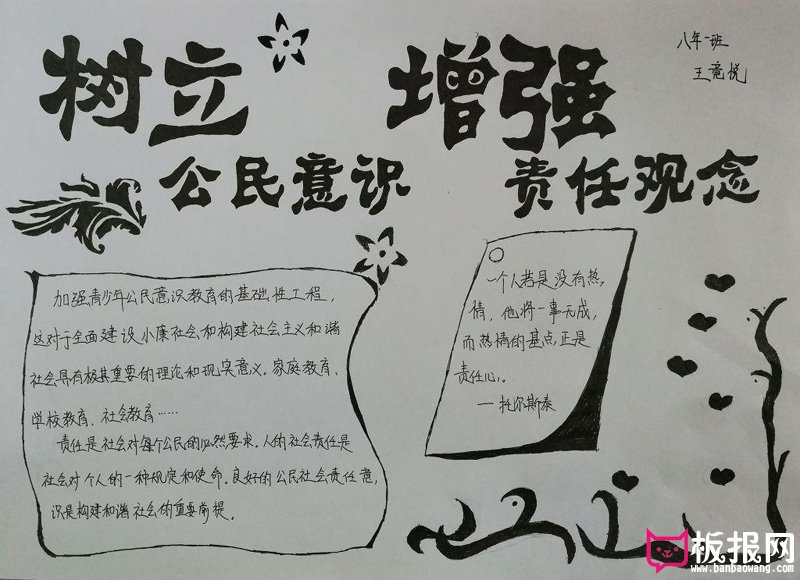 树立 增强
八年一班
王竟悦
公民意识 责任观念
加强青少年公民意识教育的基础性工程，
这对于全面建设小康社会和构建社会主义和谐
社会具有极其重要的理论和现实意义。家庭教育、
学校教育、社会教育……
责任是社会对每个公民的必然要求。人的社会责任是
社会对个人的一种规定和使命。良好的公民社会责任意，
识是构建和谐社会的重要前提。
一个人若是没有热，
情，他将一事无成，
而热情的基点，正是
责任心。
—托尔斯泰
板报网
www.banbaowang.com